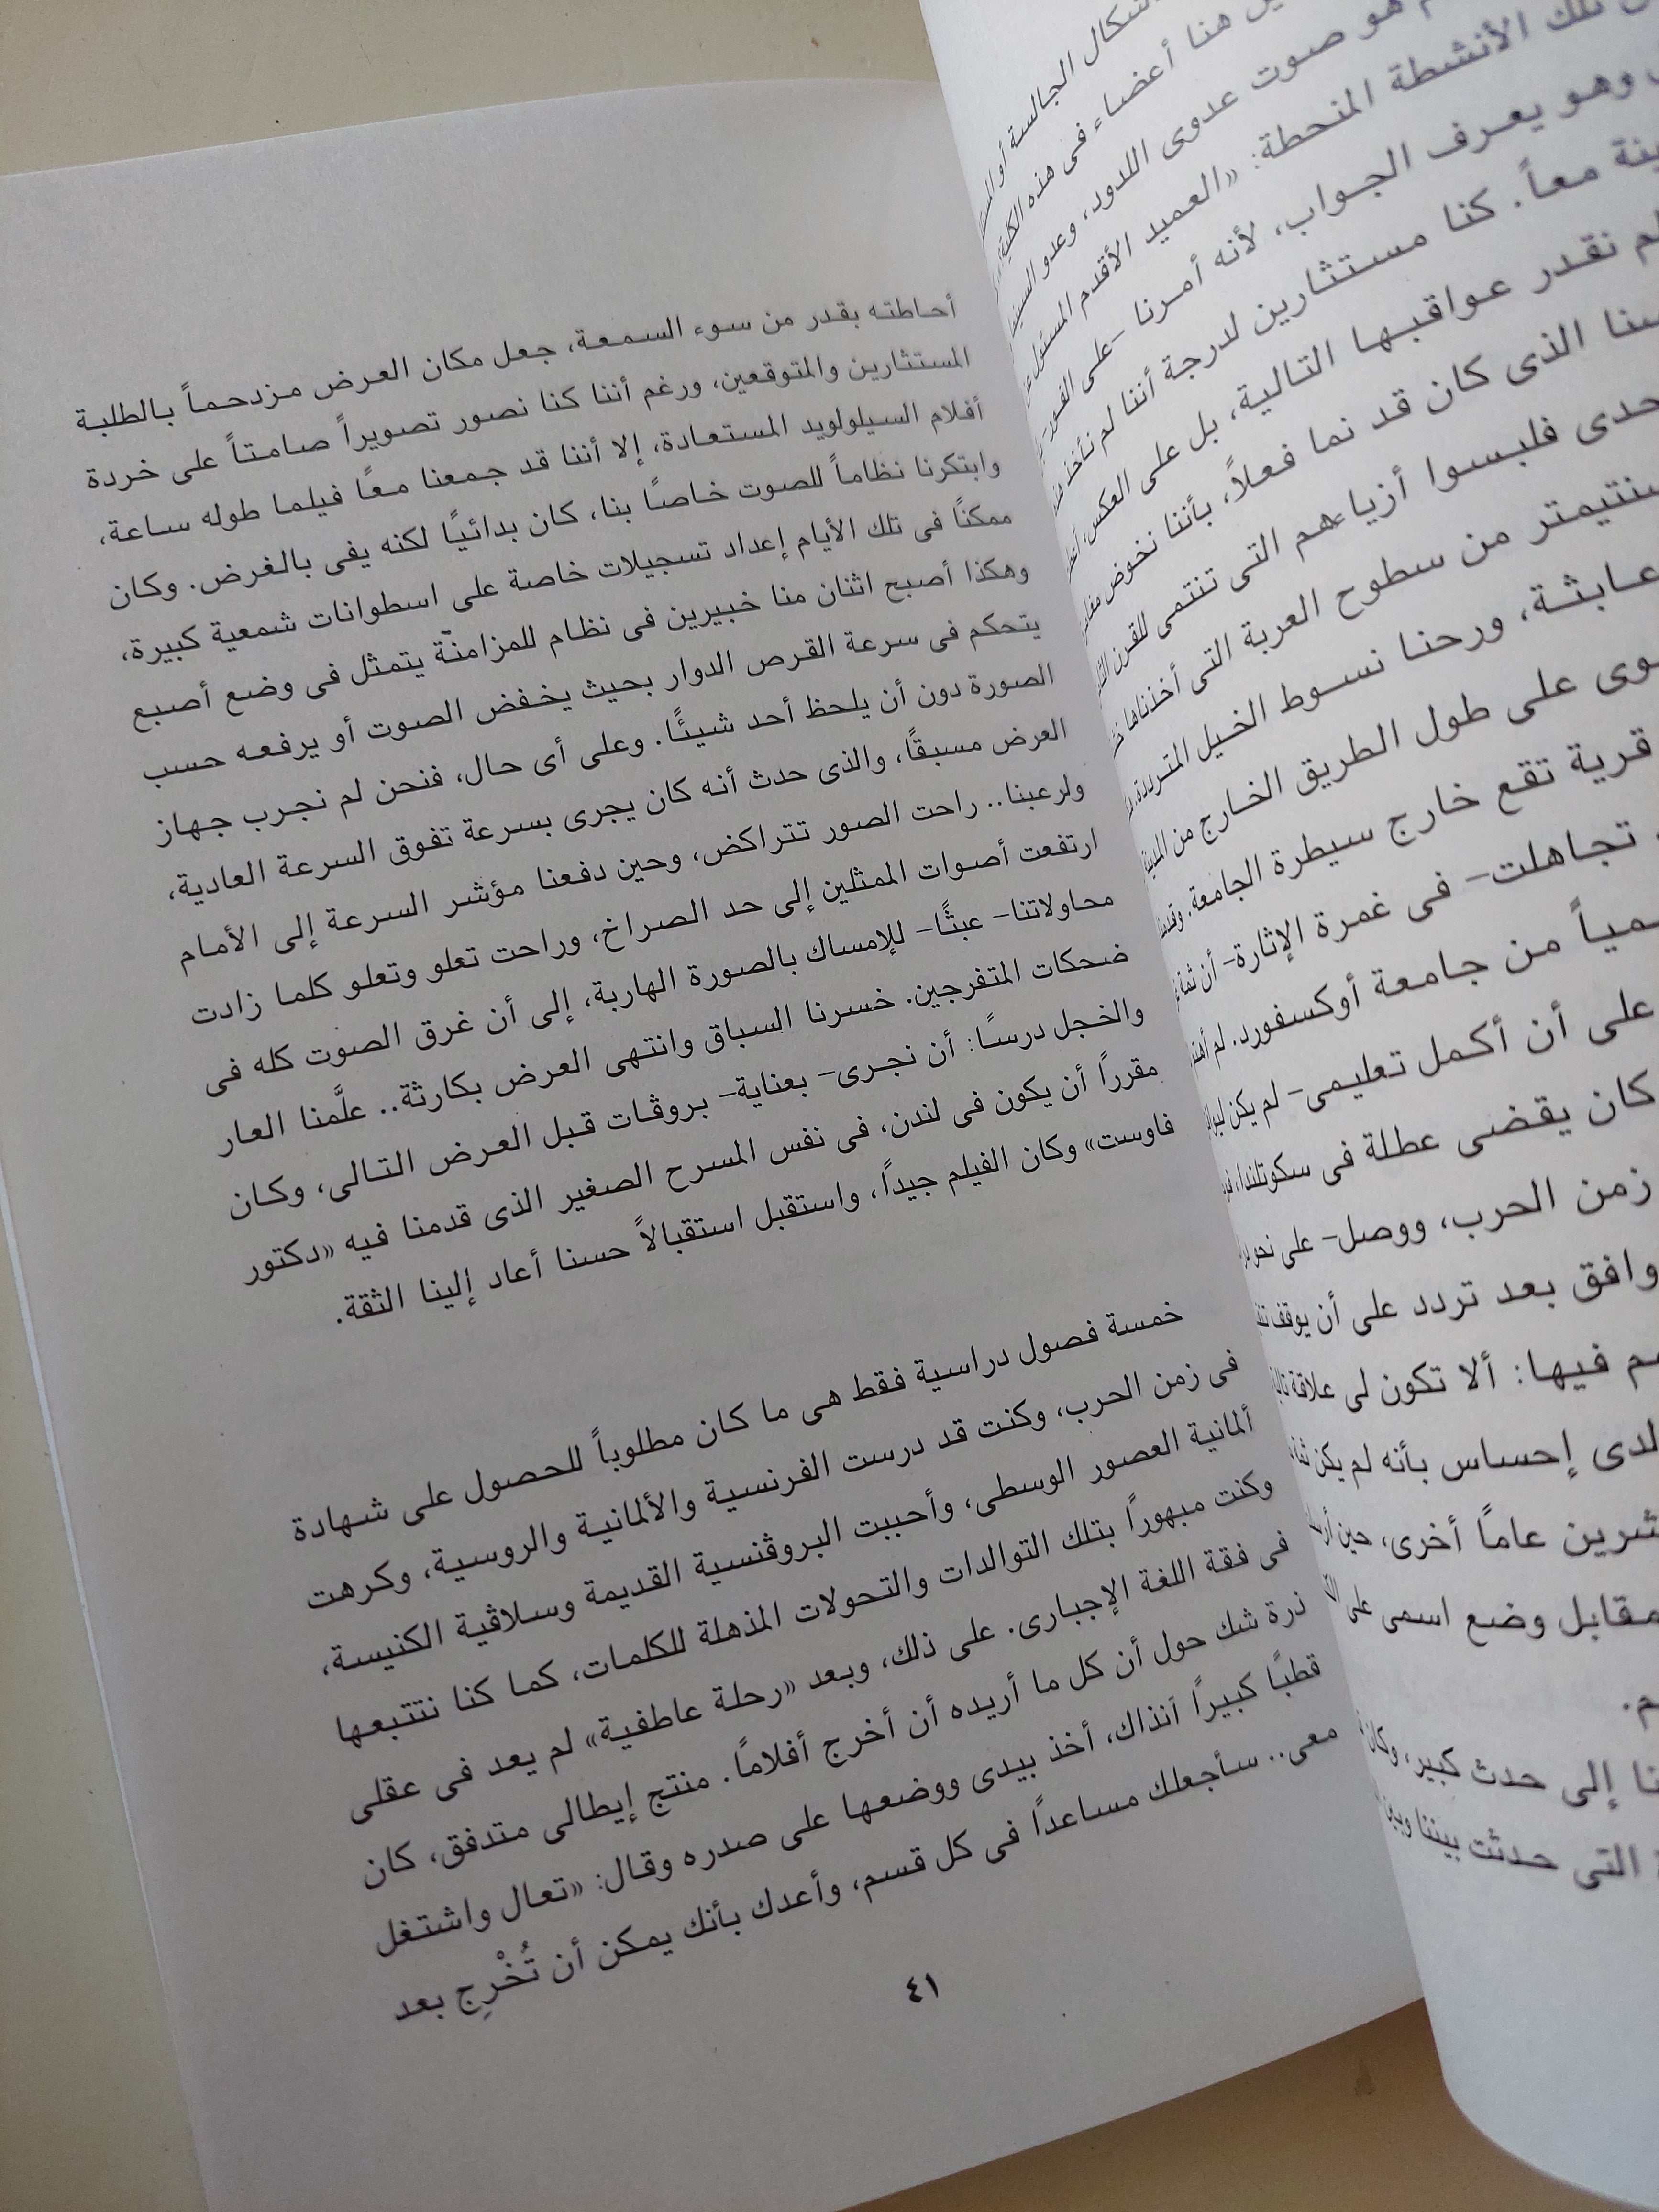 أشكال الجالسة أو
هنا أعضاء فى هذه الكلية
هو صوت عدوى اللدود، وعدو السينما
تلك الأنشطة المنحطة: «العميد الأقدم المسئول
وهو يعرف الجواب، لأنه أمرنا -على الفور-
معاً. كنا مستثارين لدرجة أننا لم نأخذ
لم نقدر عواقبها التالية، بل على العكس،
الذى كان قد نما فعلاً، بأننا نخوض
فلبسوا أزياءهم التى تنتمى للقرن
سنتيمتر من سطوح العربة التى أخذناها
عابثة، ورحنا نسوط الخيل المترددة،
على طول الطريق الخارج من المدينة
قرية تقع خارج سيطرة الجامعة.
تجاهلت- فى غمرة الإثارة- أن ثمة
من جامعة أوكسفورد. لم
على أن أكمل تعليمى- لم يكن
كان يقضى عطلة فى سكوتلندا،
زمن الحرب، ووصل- على نحو
وافق بعد تردد على أن يوقف
فيها: ألا تكون لى علاقة
لدى إحساس بأنه لم يكن
عشرين عاماً أخرى، حين
مقابل وضع اسمى على
إلى حدث كبير، وكان
التى حدثت بيننا وبين
أحاطته بقدر من سوء السمعة، جعل مكان العرض مزدحماً بالطلبة
المستثارين والمتوقعين، ورغم أننا كنا نصور تصويراً صامتاً على خردة
أفلام السيلولويد المستعادة، إلا أننا قد جمعنا معًا فيلما طوله ساعة،
وابتكرنا نظاماً للصوت خاصًا بنا، كان بدائيًا لكنه يفى بالغرض. وكان
ممكنًا فى تلك الأيام إعداد تسجيلات خاصة على اسطوانات شمعية كبيرة،
وهكذا أصبح اثنان منا خبيرين فى نظام للمزامنّة يتمثل فى وضع أصبع
يتحكم فى سرعة القرص الدوار بحيث يخفض الصوت أو يرفعه حسب
الصورة دون أن يلحظ أحد شيئًا. وعلى أى حال، فنحن لم نجرب جهاز
العرض مسبقًا، والذى حدث أنه كان يجرى بسرعة تفوق السرعة العادية،
ولرعبنا.. راحت الصور تتراكض، وحين دفعنا مؤشر السرعة إلى الأمام
ارتفعت أصوات الممثلين إلى حد الصراخ، وراحت تعلو وتعلو كلما زادت
محاولاتنا- عبثًا- للإمساك بالصورة الهاربة، إلى أن غرق الصوت كله فى
ضحكات المتفرجين. خسرنا السباق وانتهى العرض بكارثة.. علَّمنا العار
والخجل درسًا: أن نجرى- بعناية- بروڤات قبل العرض التالى، وكان
مقرراً أن يكون فى لندن، فى نفس المسرح الصغير الذى قدمنا فيه «دكتور
فاوست» وكان الفيلم جيداً، واستقبل استقبالاً حسنا أعاد إلينا الثقة.
خمسة فصول دراسية فقط هى ما كان مطلوباً للحصول على شهادة
فى زمن الحرب، وكنت قد درست الفرنسية والألمانية والروسية، وكرهت
ألمانية العصور الوسطى، وأحببت البروڤنسية القديمة وسلاڤية الكنيسة،
وكنت مبهوراً بتلك التوالدات والتحولات المذهلة للكلمات، كما كنا نتتبعها
فى فقة اللغة الإجبارى. على ذلك، وبعد «رحلة عاطفية» لم يعد فى عقلى
ذرة شك حول أن كل ما أريده أن أخرج أفلامًا. منتج إيطالى متدفق، كان
قطبًا كبيرًا آنذاك، أخذ بيدى ووضعها على صدره وقال: «تعال واشتغل
معى.. سأجعلك مساعداً فى كل قسم، وأعدك بأنك يمكن أن تُخْرِج بعد
٤١